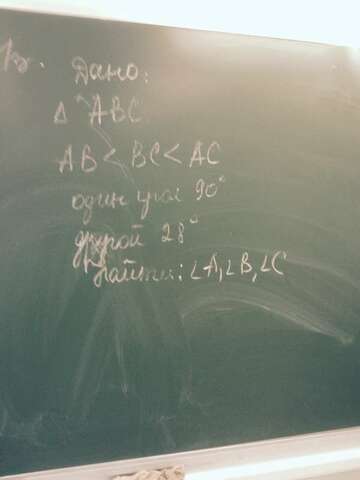 Дано:
Δ ABC
AB < BC < AC
один угол 90°
другой 28°
Найти: ∠A, ∠B, ∠C